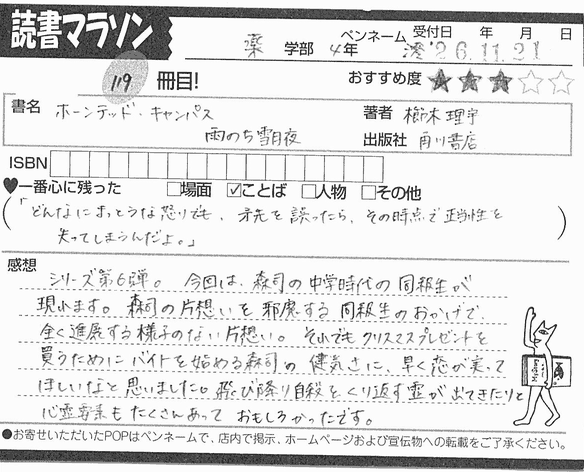 読書マラソン
薬 学部 4年 ペンネーム 澪 受付日 年 月 日
'26.11.21
119 冊目! おすすめ度 ★★★☆☆
書名 ホーンテッド・キャンパス 著者 櫛木理宇
雨のち雪月夜 出版社 角川書店
ISBN
♥一番心に残った □場面 ☑ことば □人物 □その他
(「どんなにまっとうな怒りでも、矛先を誤ったら、その時点で正当性を
失ってしまうんだよ。」)
感想
シリーズ第6弾。 今回は、森司の中学時代の同級生が
現れます。森司の片想いを邪魔する同級生のおかげで、
全く進展する様子のない片想い。それでもクリスマスプレゼントを
買うためにバイトを始める森司の健気さに、早く恋が実って
ほしいなと思いました。飛び降り自殺をくり返す霊が出てきたりと
心霊要素もたくさんあっておもしろかったです。
●お寄せいただいたPOPはペンネームで、店内で掲示、ホームページおよび宣伝物への転載をご了承ください。